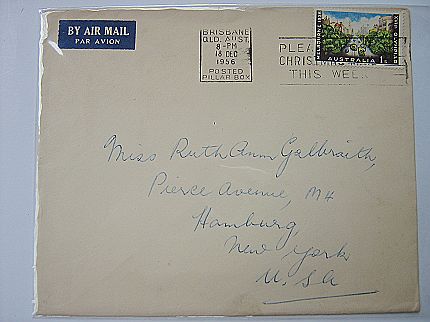 BY AIR MAIL
PAR AVION
BRISBANE
QLD. AUST.
8-PM
18 DEC
1956
POSTED
PILLAR BOX
PLEA
CHRIS
THIS WEEK
MELBOURNE 1956
OLYMPIC GAMES
AUSTRALIA 1s
Miss Ruth Ann Galbraith,
Pierce Avenue, MH
Hamburg,
New York
U.S.A